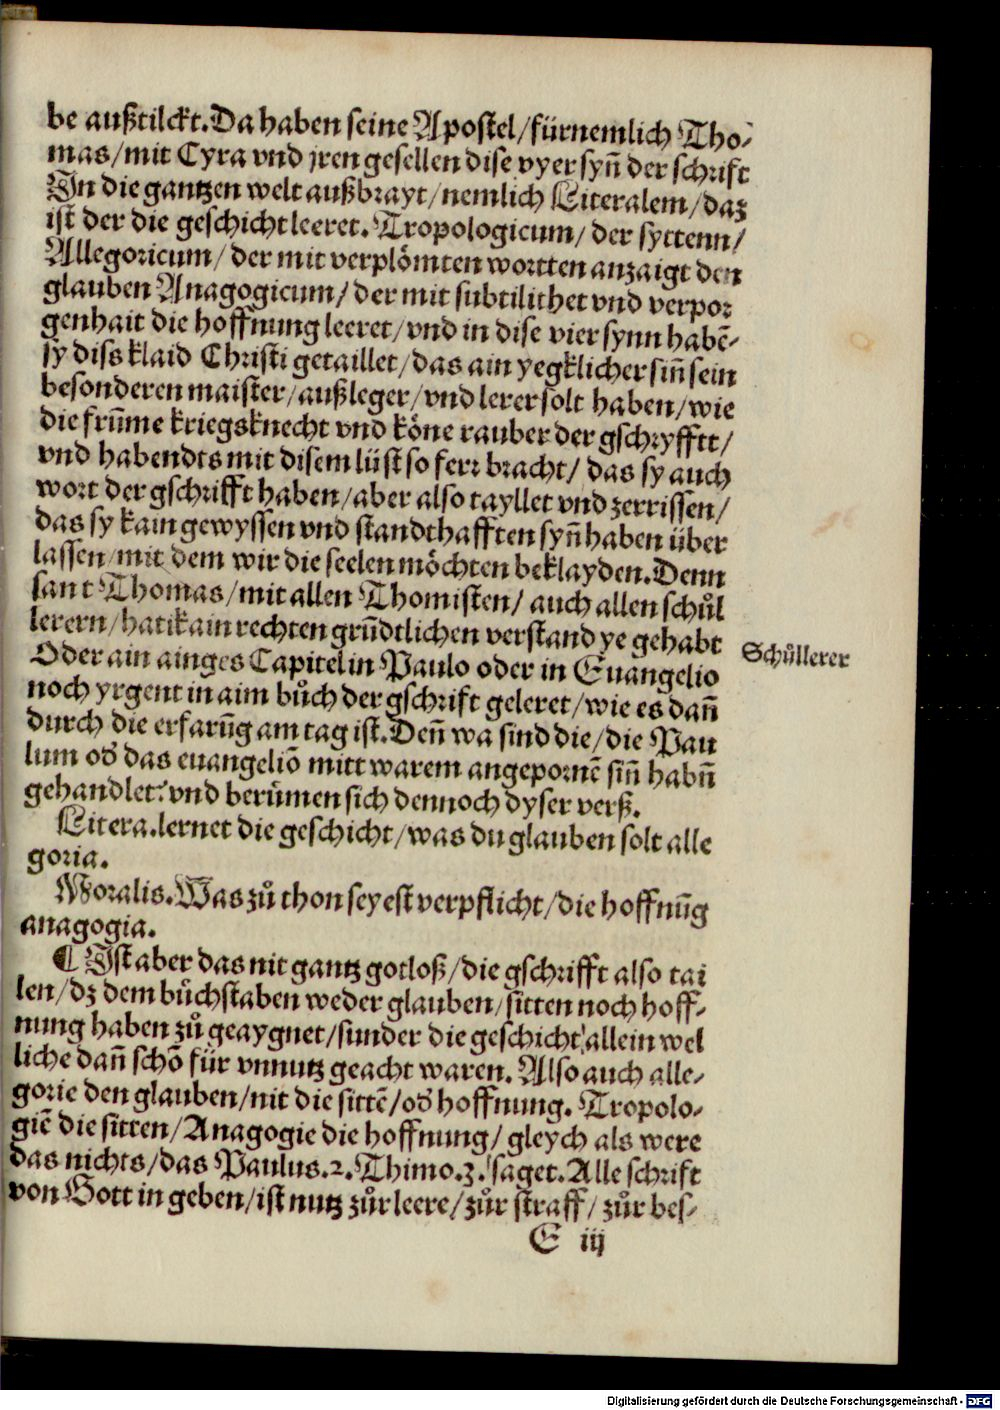 be außtilckt. Da haben seine Apostel/ fürnemlich Tho-
mas/ mit Cyra vnd jren gesellen dise vyer syñ der schrift
In die gantzen welt außbrayt/ nemlich Literalem/ daz
ist der die geschicht leeret. Tropologicum/ der syttenn/
Allegoricum/ der mit verplömten wortten anzaigt den
glauben Anagogicum/ der mit subtilithet vnd verpor
genhait die hoffnung leeret/ vnd in dise vier synn habẽ-
sy diss klaid Christi getaillet/ das ain yegklicher siñ sein
besonderen maister/ außleger/ vnd lerer solt haben/ wie
die frũme kriegsknecht vnd köne rauber der gschryfftt/
vnd habendts mit disem lüst so ferr bracht/ das sy auch
wort der gschrifft haben/ aber also tayllet vnd zerrissen/
das sy kain gewyssen vnd standthafften syñ haben über
lassen/ mit dem wir die seelen möchten beklayden. Denn
sant Thomas/ mit allen Thomisten/ auch allen schůl
lerern/ hat kain rechten grũdtlichen verstand ye gehabt
Oder ain ainges Capitel in Paulo oder in Euangelio
noch yrgent in aim bůch der gschrift geleret/ wie es dañ
durch die erfarũg am tag ist. Deñ wa sind die/ die Pau
lum od̕ das euangeliõ mitt warem angepornẽ siñ habñ
gehandlet? vnd berůmen sich dennoch dyser verß.
Litera. lernet die geschicht/ was du glauben solt alle
goria.
Moralis. Was zů thon sey est verpflicht/ die hoffnũg
anagogia.
¶ Ist aber das nit gantz gotloß/ die gschrifft also tai
len/ dz dem bůchstaben weder glauben/ sitten noch hoff-
nung haben zů geaygnet/ sunder die geschicht allein wel
liche dañ schõ für vnnutz geacht waren. Also auch alle-
gorie den glauben/ nit die sittẽ/ od̕ hoffnung. Tropolo-
giẽ die sitten/ Anagogie die hoffnung/ gleych als were
das nichts/ das Paulus. 2. Thimo. 3. saget. Alle schrift
von Gott in geben/ ist nutz zůr leere/ zůr straff/ zůr bes-
E iij
Schůllerer
Digitalisierung gefördert durch die Deutsche Forschungsgemeinschaft - DFG